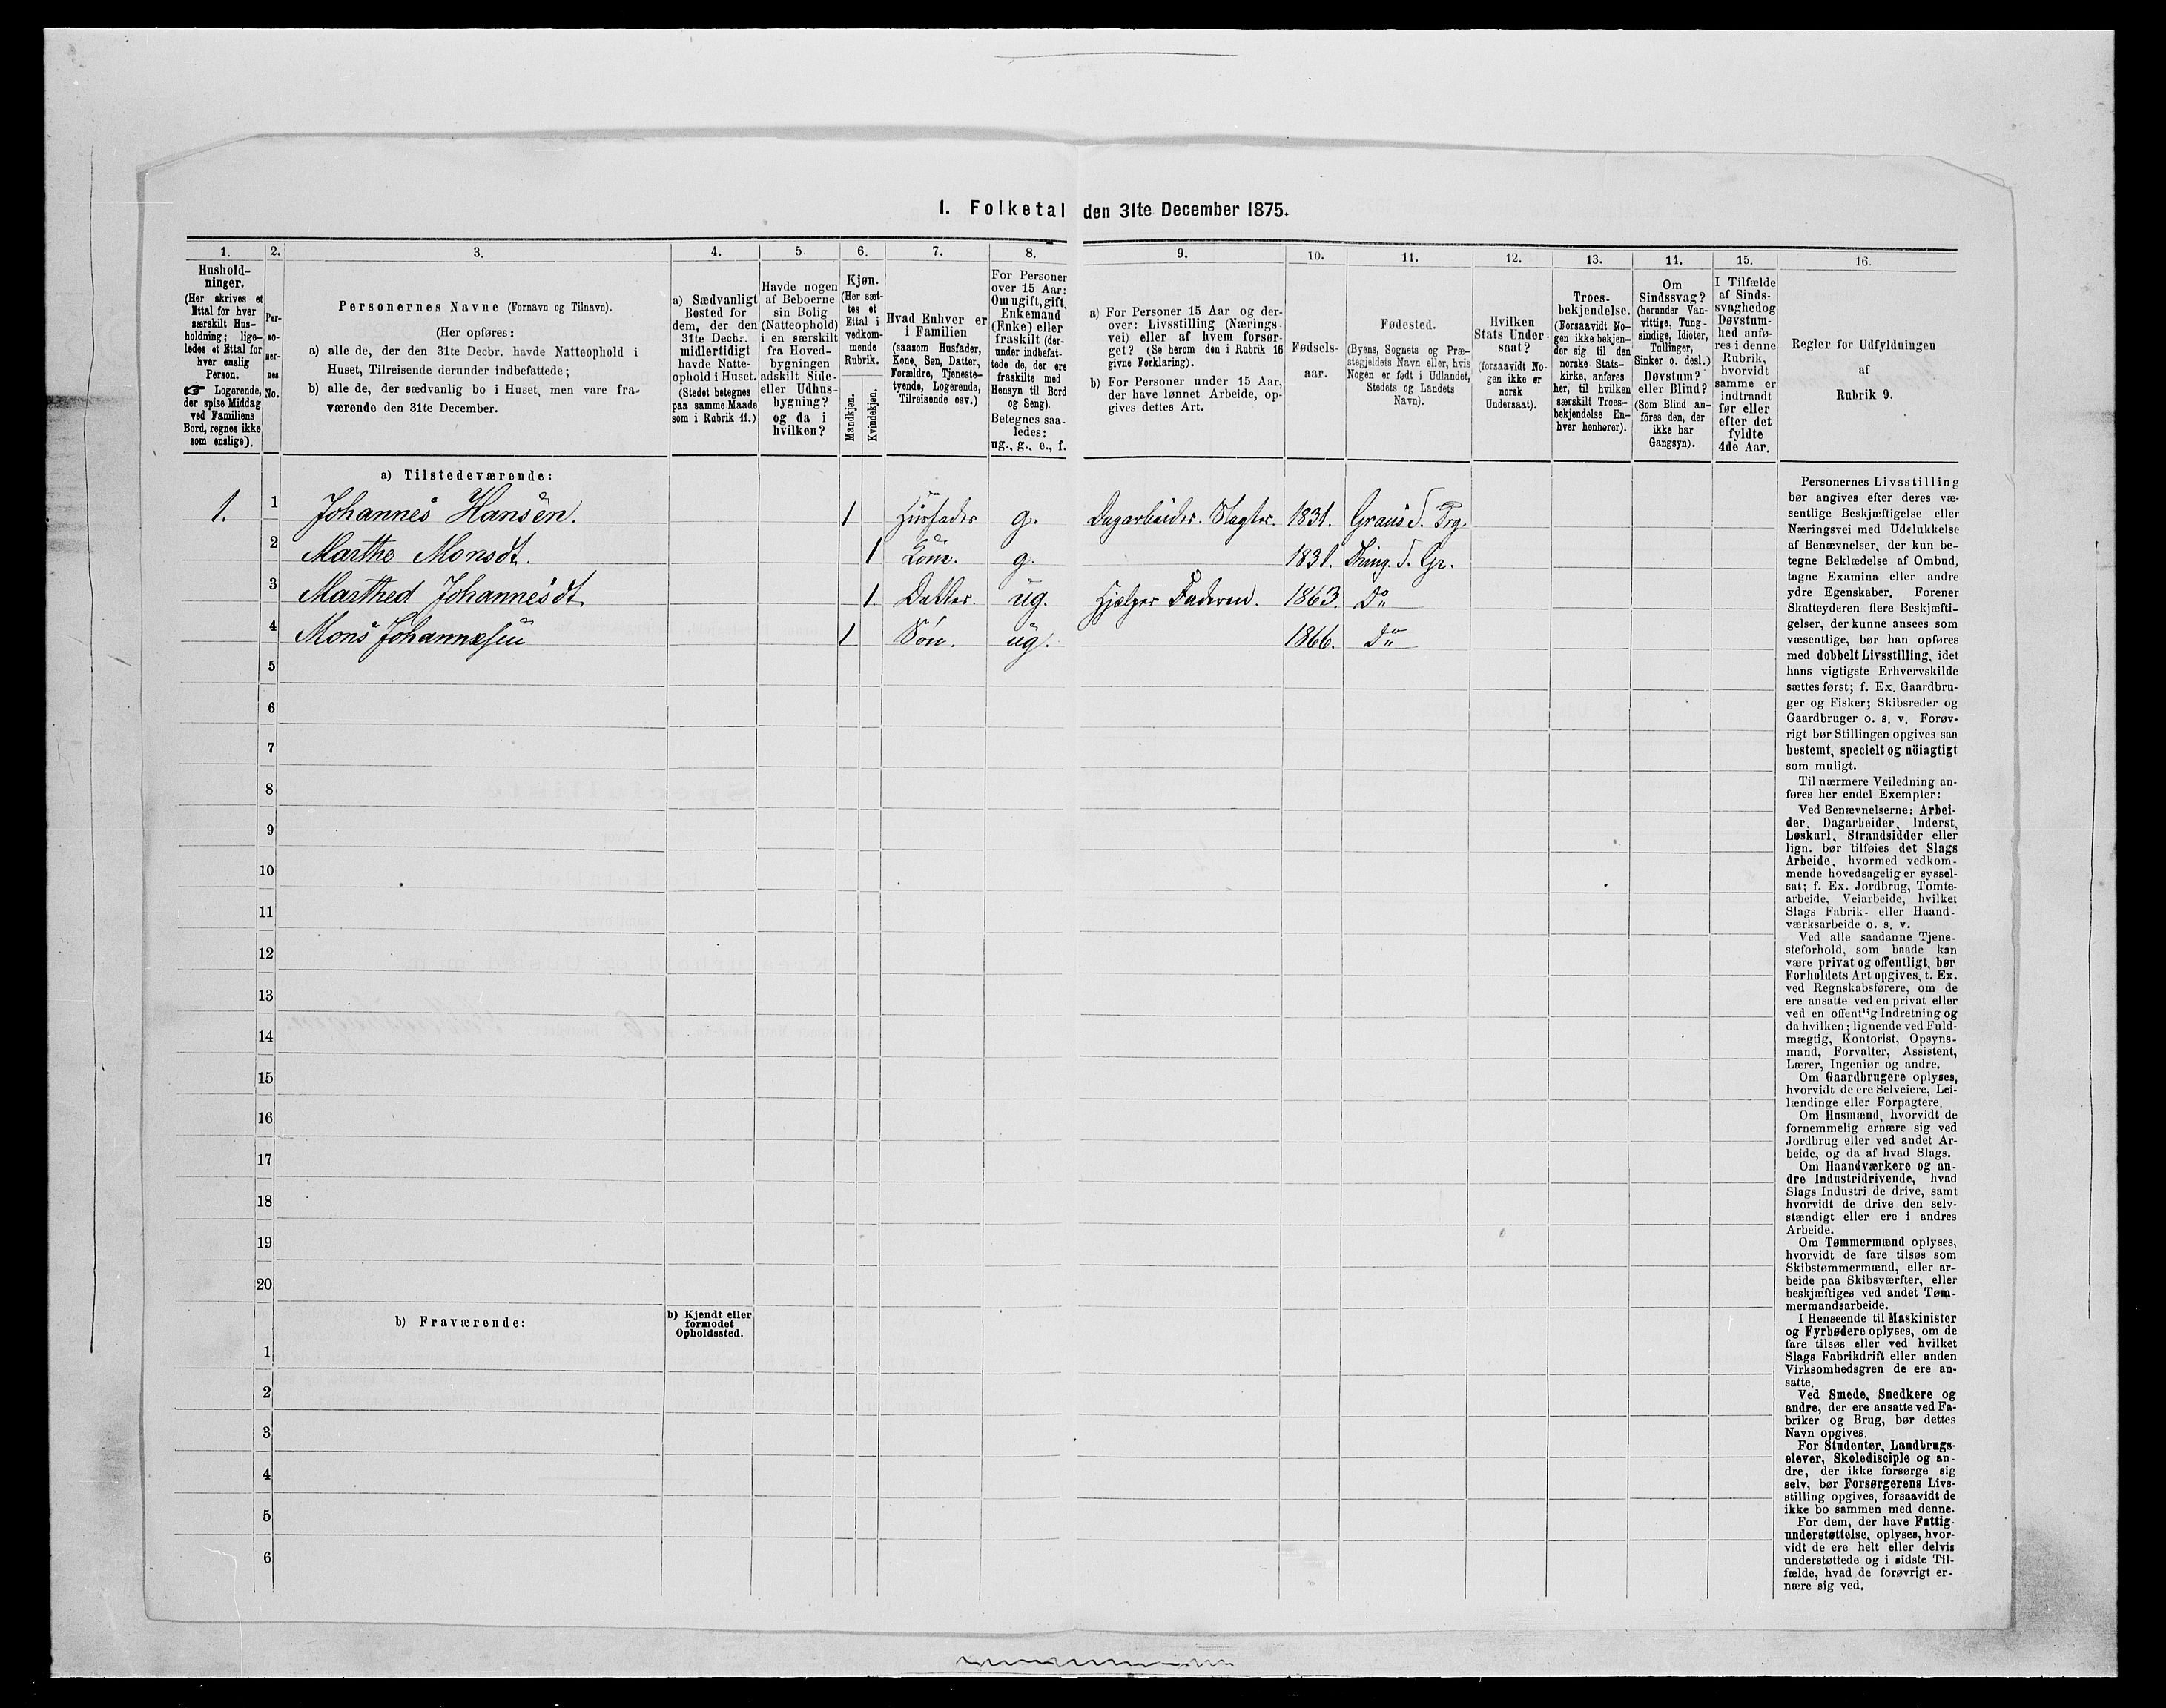 I. Folketal den 31te December 1875.
1.
Hushold-
ninger.
(Her skrives et
Ettal for hver
særskilt Hus-
holdning; lige-
ledes et Ettal for
hver enslig
Person.
☞ Logerende,
der spise Middag
ved Familiens
Bord, regnes ikke
som enslige).
2.
Per-
so-
ner-
nes
No.
3.
Personernes Navne (Fornavn og Tilnavn).
(Her opføres:
a) alle de, der den 31te Decbr. havde Natteophold i
Huset, Tilreisende derunder indbefattede;
b) alle de, der sædvanlig bo i Huset, men vare fra-
værende den 31te December.
4.
a) Sædvanligt
Bosted for
dem, der den
31te Decbr.
midlertidigt
havde Natte-
ophold i Huset.
(Stedet betegnes
paa samme Maade
som i Rubrik 11.)
5.
Havde nogen
af Beboerne
sin Bolig
(Natteophold)
i en særskilt
fra Hoved-
bygningen
adskilt Side-
eller Udhus-
bygning?
og da i
hvilken?
6.
Kjøn.
(Her sæt-
tes et
Ettal i
vedkom-
mende
Rubrik.
Mandkjøn.
Kvindekjøn.
7.
Hvad Enhver er
i Familien
(saasom Husfader,
Kone, Søn, Datter,
Forældre, Tjeneste-
tyende, Logerende,
Tilreisende osv.)
8.
For Personer
over 15 Aar:
Om ugift, gift,
Enkemand
(Enke) eller
fraskilt (der-
under indbefat-
tede de, der ere
fraskilte med
Hensyn til Bord
og Seng).
Betegnes saa-
ledes:
ug., g., e., f.
9.
a) For Personer 15 Aar og der-
over: Livsstilling (Nærings-
vei) eller af hvem forsør-
get? (Se herom den i Rubrik 16
givne Forklaring).
b) For Personer under 15 Aar,
der have lønnet Arbeide, op-
gives dettes Art.
10.
Fødsels-
aar.
11.
Fødested.
(Byens, Sognets og Præ-
stegjeldets Navn eller, hvis
Nogen er født i Udlandet,
Stedets og Landets
Navn).
12.
Hvilken
Stats Under-
saat?
(forsaavidt No-
gen ikke er
norsk
Undersaat).
13.
Troes-
bekjendelse.
(Forsaavidt No-
gen ikke bekjen-
der sig til den
norske Stats-
kirke, anføres
her, til hvilken
særskilt Troes-
bekjendelse En-
hver henhører).
14.
Om
Sindssvag?
(herunder Van-
vittige, Tung-
sindige, Idioter,
Tullinger,
Sinker o. desl.)
Døvstum?
eller Blind?
(Som Blind an-
føres den, der
ikke har
Gangsyn).
15.
I Tilfælde
af Sinds-
svaghed og
Døvstum-
hed anfø-
res i denne
Rubrik,
hvorvidt
samme er
indtraadt
før eller
efter det
fyldte
4de Aar.
16.
Regler for Udfyldningen
af
Rubrik 9.
a) Tilstedeværende:
1. 1 Johannes Hansen. 1 Husfader g. Dagarbeider. Slagter. 1831. Graus S. Prg.
2 Marthe Monsdt. 1 Kone. g. 1831. Thing. S. Gr.
3 Marthed Johannesdt 1. Datter. ug. Hjælper Faderen. 1863. Do
4 Mons Johannesen 1 Søn. ug. 1866. Do
5
6
7
8
9
10
11
12
13
14
15
16
17
18
19
20
b) Fraværende:
b) Kjendt eller
formodet
Opholdssted.
1
2
3
4
5
6
Personernes Livsstilling
bør angives efter deres væ-
sentlige Beskjæftigelse eller
Næringsvei med Udelukkelse
af Benævnelser, der kun be-
tegne Beklædelse af Ombud,
tagne Examina eller andre
ydre Egenskaber. Forener
Skatteyderen flere Beskjæfti-
gelser, der kunne ansees som
væsentlige, bør han opføres
med dobbelt Livsstilling, idet
hans vigtigste Erhvervskilde
sættes først; f. Ex. Gaardbru-
ger og Fisker; Skibsreder og
Gaardbruger o. s. v. Forøv-
rigt bør Stillingen opgives saa
bestemt, specielt og nöiagtigt
som muligt.
Til nærmere Veiledning an-
føres her endel Exempler:
Ved Benævnelserne: Arbei-
der, Dagarbeider, Inderst,
Løskarl, Strandsidder eller
lign. bør tilføies det Slags
Arbeide, hvormed vedkom-
mende hovedsagelig er syssel-
sat; f. Ex. Jordbrug, Tomte-
arbeide, Veiarbeide, hvilket
Slags Fabrik- eller Haand-
værksarbeide o. s. v.
Ved alle saadanne Tjene-
steforhold, som baade kan
være privat og offentligt, bør
Forholdets Art opgives, t. Ex.
ved Regnskabsførere, om de
ere ansatte ved en privat eller
ved en offentlig Indretning og
da hvilken; lignende ved Fuld-
mægtig, Kontorist, Opsyns-
mand, Forvalter, Assistent,
Lærer, Ingeniør og andre.
Om Gaardbrugere oplyses,
hvorvidt de ere Selveiere, Lei-
lændinge eller Forpagtere.
Om Husmænd, hvorvidt de
fornemmelig ernære sig ved
Jordbrug eller ved andet Ar-
beide, og da af hvad Slags.
Om Haandværkere og an-
dre Industridrivende, hvad
Slags Industri de drive, samt
hvorvidt de drive den selv-
stændigt eller ere i andres
Arbeide.
Om Tømmermænd oplyses,
hvorvidt de fare tilsøs som
Skibstømmermænd, eller ar-
beide paa Skibsværfter, eller
beskjæftiges ved andet Tøm-
mermandsarbeide.
I Henseende til Maskinister
og Fyrbødere oplyses, om de
fare tilsøs eller ved hvilket
Slags Fabrikdrift eller anden
Virksomhedsgren de ere an-
satte.
Ved Smede, Snedkere og
andre, der ere ansatte ved Fa-
briker og Brug, bør dettes
Navn opgives.
For Studenter, Landbrugs-
elever, Skoledisciple og an-
dre, der ikke forsørge sig
selv, bør Forsørgerens Livs-
stilling opgives, forsaavidt de
ikke bo sammen med denne.
For dem, der have Fattig-
understøttelse, oplyses, hvor-
vidt de ere helt eller delvis
understøttede og i sidste Til-
fælde, hvad de forøvrigt er-
nære sig ved.